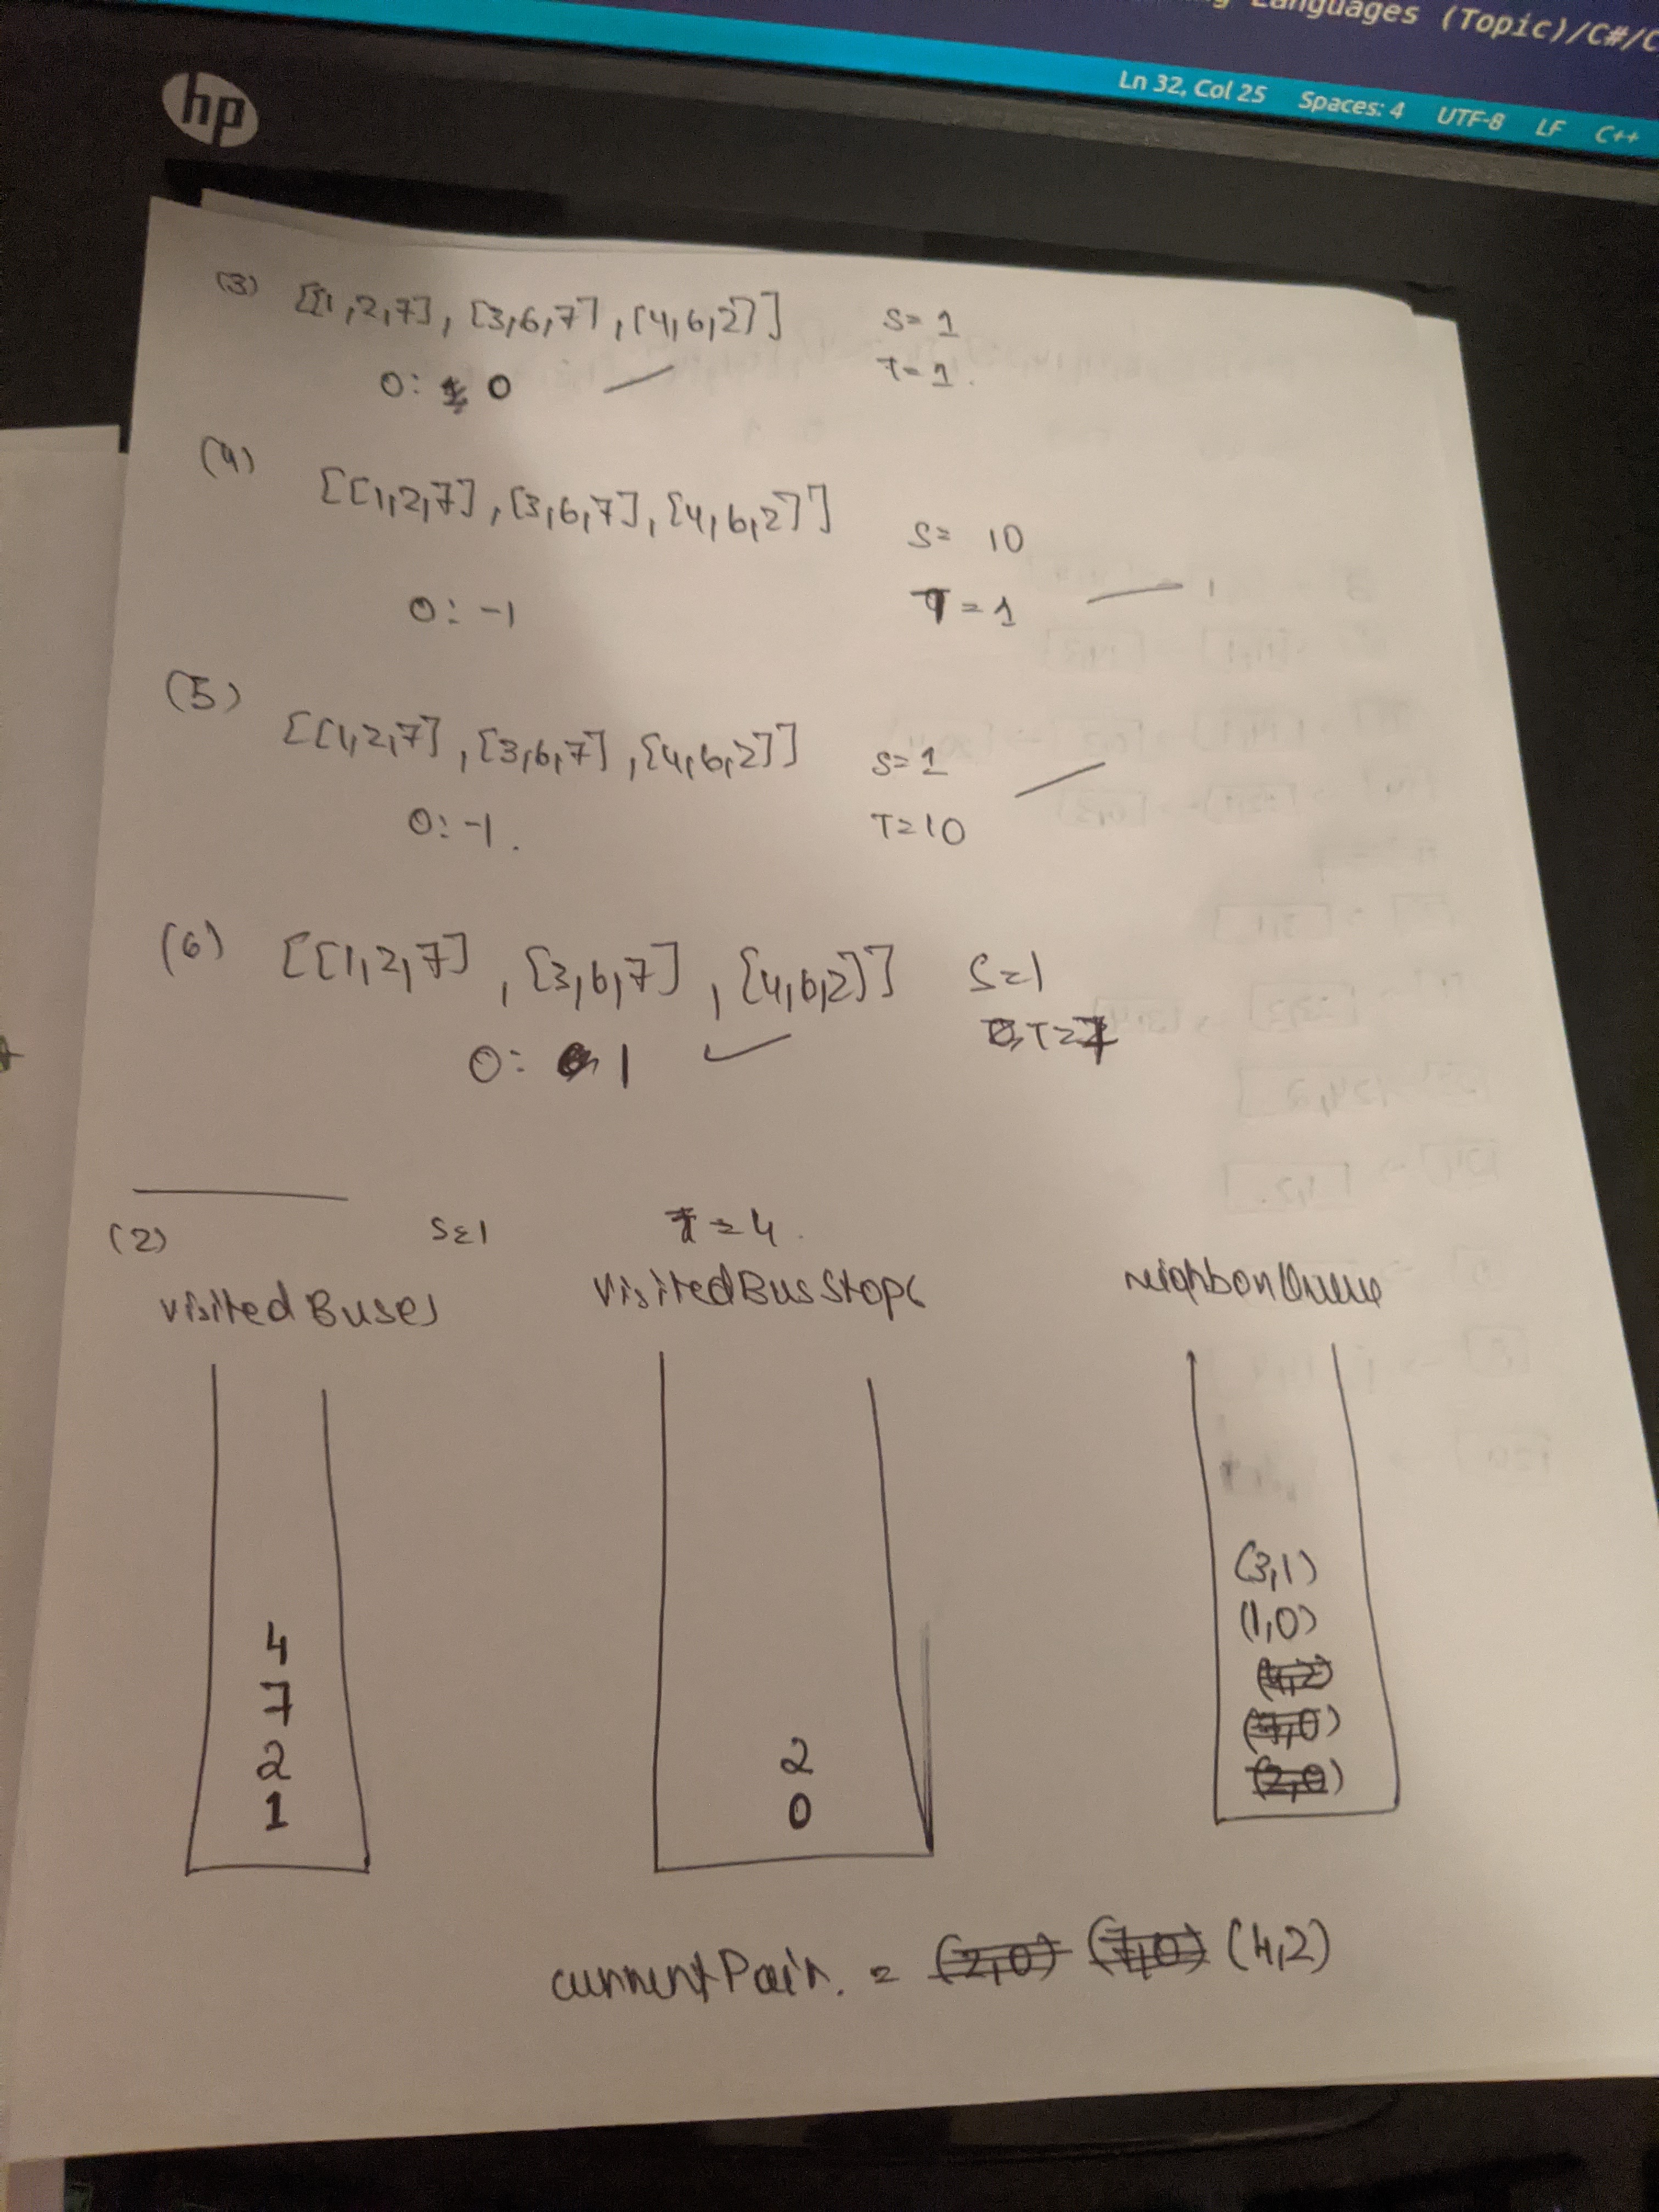 Languages (Topic)/C#/C
Ln 32, Col 25 Spaces: 4 UTF-8 LF C++
hp
(3) [[1,2,7], [3,6,7], [4,6,2]] S=1
O: 0 T=1.
(4) [[1,2,7], [3,6,7], [4,6,2]] S= 10
O: -1 T=1
(5) [[1,2,7], [3,6,7], [4,6,2]] S=1
O: -1. T=10
(6) [[1,2,7], [3,6,7], [4,6,2]] S=1
O: 1 T=7
(2) S=1 T=4.
visitedBuses visitedBusStops neighborQueue
(3,1)
4 (1,0)
7 (4,2)
2 2 (7,0)
1 0 (2,0)
currentPair. = (2,0) (7,0) (4,2)